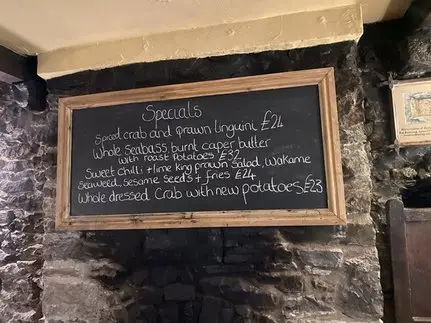 Specials
Spiced crab and prawn linguini £24
Whole Seabass burnt caper butter
with roast Potatoes £32
Sweet chilli + lime king prawn Salad, Wakame
Seaweed, Sesame Seeds + fries £24
Whole dressed Crab with new potatoes £23